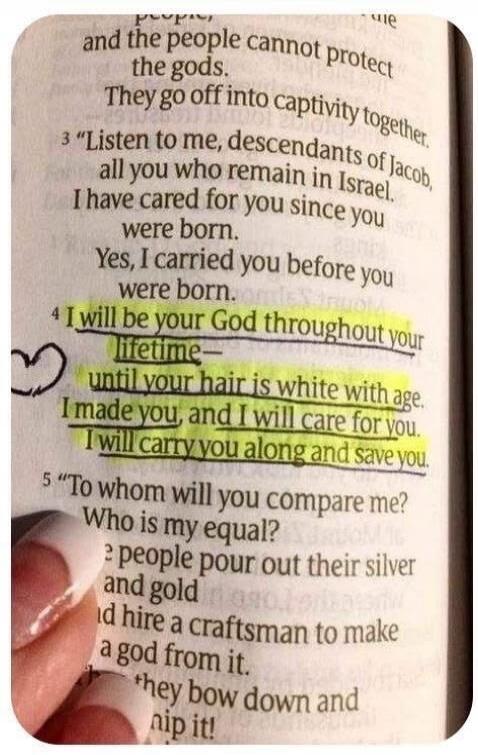 people,
and the people cannot protect
the gods.
They go off into captivity together.
3 “Listen to me, descendants of Jacob,
all you who remain in Israel.
I have cared for you since you
were born.
Yes, I carried you before you
were born.
4 I will be your God throughout your
lifetime—
until your hair is white with age.
I made you, and I will care for you.
I will carry you along and save you.
5 “To whom will you compare me?
Who is my equal?
people pour out their silver
and gold
hire a craftsman to make
a god from it.
they bow down and
it!